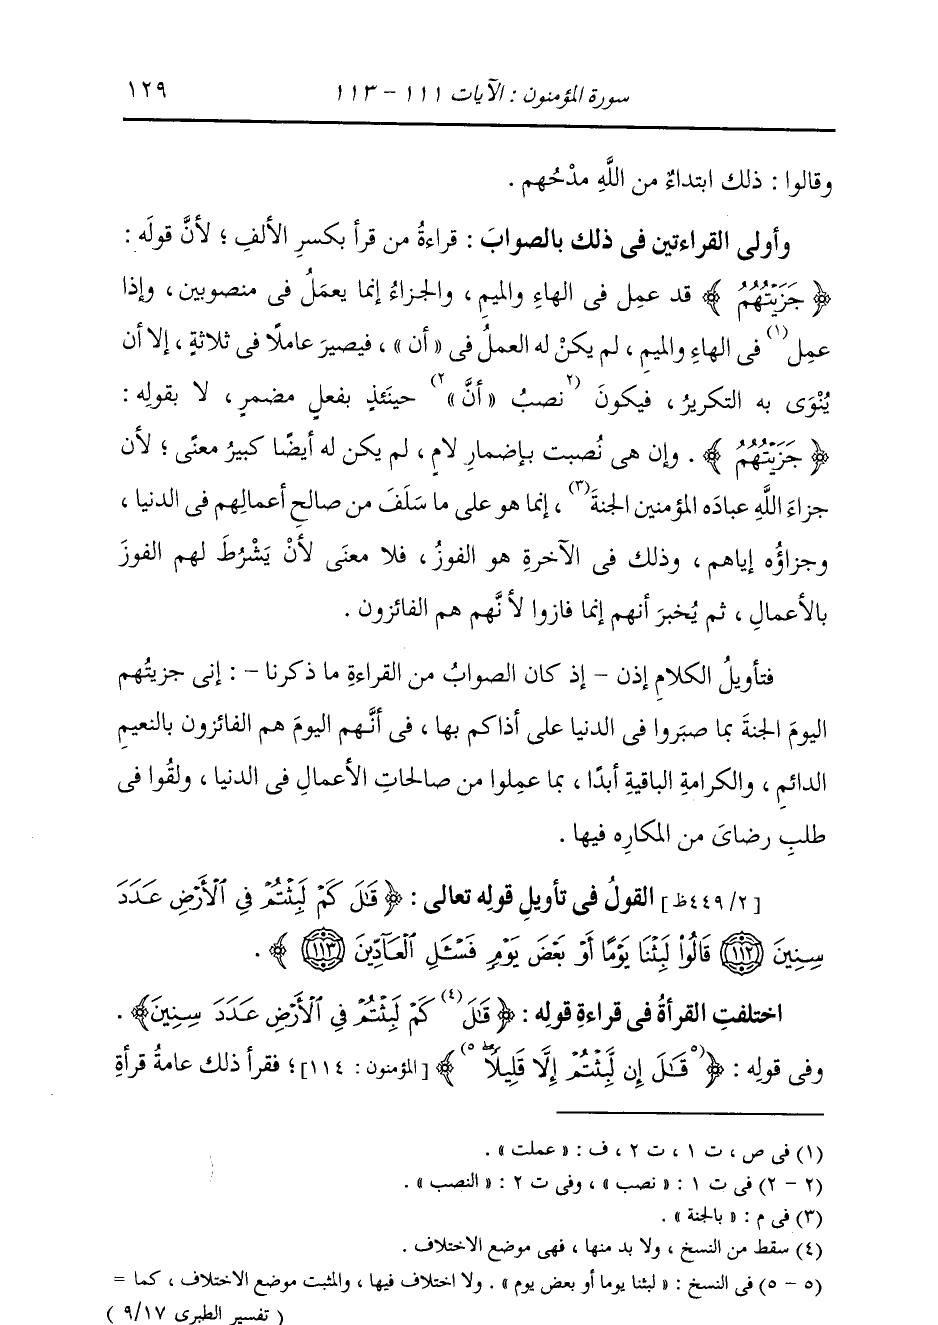 سورة المؤمنون : الآيات ١١١ - ١١٣ ١٢٩
وقالوا : ذلك ابتداءٌ من اللَّهِ مدْحُهم .
وأولى القراءتين فى ذلك بالصوابَ : قراءةُ من قرأ بكسرِ الألفِ ؛ لأنَّ قولَه :
﴿ جَزَيْتُهُمُ ﴾ قد عمِل فى الهاءِ والميمِ ، والجزاءُ إنما يعمَلُ فى منصوبين ، وإذا
عمِل(١) فى الهاءِ والميمِ ، لم يكنْ له العملُ فى « أن » ، فيصيرَ عاملًا فى ثلاثةٍ ، إلا أن
يُنْوَى به التكريرُ ، فيكونَ (٢نصبُ « أنَّ »٢) حينَئذٍ بفعلٍ مضمرٍ ، لا بقولِه :
﴿ جَزَيْتُهُمُ ﴾ . وإن هى نُصبت بإضمارِ لامٍ ، لم يكن له أيضًا كبيرُ معنًى ؛ لأن
جزاءَ اللَّهِ عبادَه المؤمنين الجنةَ(٣) ، إنما هو على ما سَلَفَ من صالحِ أعمالِهم فى الدنيا ،
وجزاؤُه إياهم ، وذلك فى الآخرةِ هو الفوزُ ، فلا معنَى لأنْ يَشْرُطَ لهم الفوزَ
بالأعمالِ ، ثم يُخبرَ أنهم إنما فازوا لأنَّهم هم الفائزون .
فتأويلُ الكلامِ إذن - إذ كان الصوابُ من القراءةِ ما ذكرنا - : إنى جزيتُهم
اليومَ الجنةَ بما صبَروا فى الدنيا على أذاكم بها ، فى أنَّهم اليومَ هم الفائزون بالنعيمِ
الدائمِ ، والكرامةِ الباقيةِ أبدًا ، بما عمِلوا من صالحاتِ الأعمالِ فى الدنيا ، ولقُوا فى
طلبِ رضاىَ من المكارِه فيها .
[٤٤٩/٢ظ] القولُ فى تأويلِ قولِه تعالى : ﴿ قَٰلَ كَمْ لَبِثْتُمْ فِي ٱلْأَرْضِ عَدَدَ
سِنِينَ ﴿١١٢﴾ قَالُوا۟ لَبِثْنَا يَوْمًا أَوْ بَعْضَ يَوْمٍ فَسْـَٔلِ ٱلْعَآدِّينَ ﴿١١٣﴾ ﴾ .
اختلفتِ القرأةُ فى قراءةِ قولِه : ﴿ قَٰلَ(٤) كَمْ لَبِثْتُمْ فِي ٱلْأَرْضِ عَدَدَ سِنِينَ﴾ .
وفى قولِه : ﴿ (٥قَٰلَ إِن لَّبِثْتُمْ إِلَّا قَلِيلًاۖ ٥)﴾ [المؤمنون : ١١٤] ؛ فقرأ ذلك عامةُ قرأةِ
(١) فى ص ، ت ١ ، ت ٢ ، ف : « عملت » .
(٢ - ٢) فى ت ١ : « نصب » ، وفى ت ٢ : « النصب » .
(٣) فى م : « بالجنة » .
(٤) سقط من النسخ ، ولا بد منها ، فهى موضع الاختلاف .
(٥ - ٥) فى النسخ : « لبثنا يوما أو بعض يوم » . ولا اختلاف فيها ، والمثبت موضع الاختلاف ، كما =
( تفسير الطبرى ٩/١٧ )